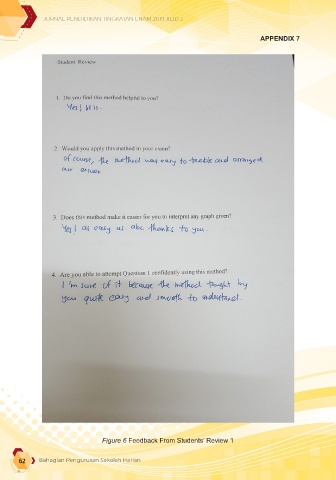 JURNAL PENDIDIKAN TINGKATAN ENAM 2019 JILID 2
APPENDIX 7
Student Review
1. Do you find this method helpful to you?
Yes! It is.
2. Would you apply this method in your exam?
Of course, the method was easy to tackle and arranged
our answer
3. Does this method make it easier for you to interpret any graph given?
Yes! as easy as abc thanks to you.
4. Are you able to attempt Question 1 confidently using this method?
I'm sure of it because the method taught by
you quite easy and smooth to understand.
Figure 6 Feedback From Students' Review 1
62
Bahagian Pengurusan Sekolah Harian